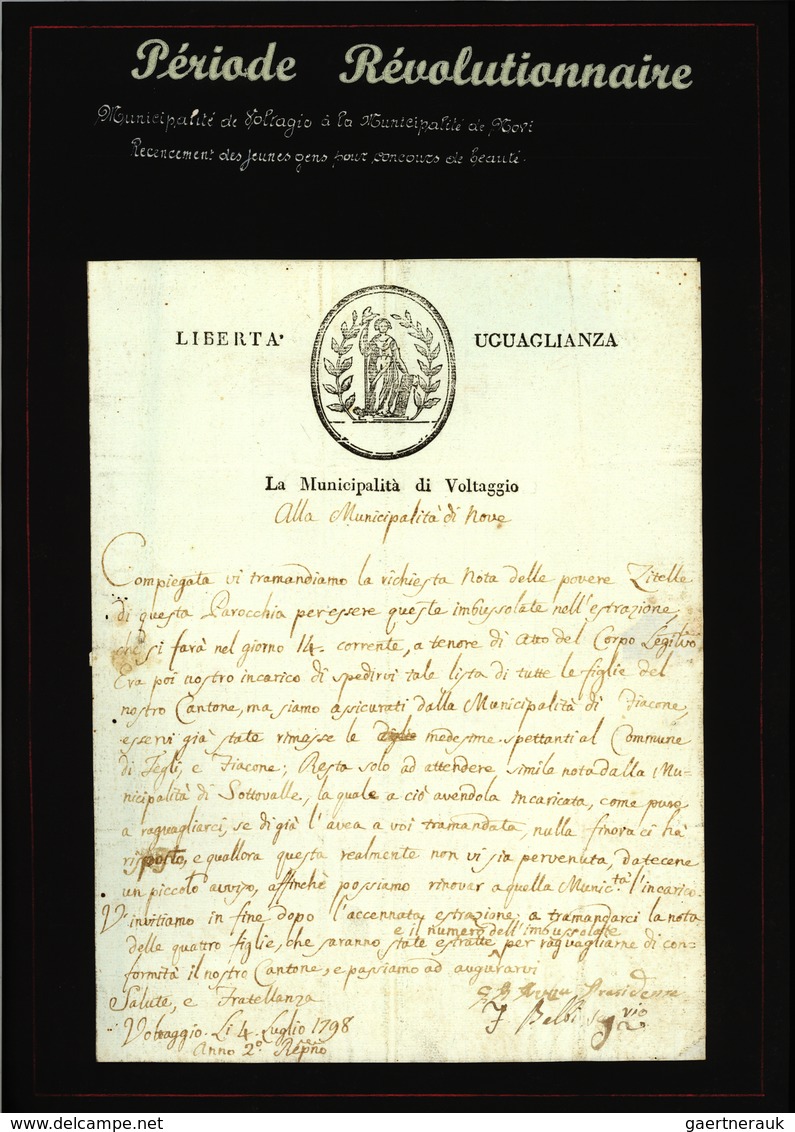 Période Révolutionnaire
Municipalité de Voltagio à la Municipalité de Novi
Recencement des jeunes gens pour concours de beauté.
LIBERTA' UGUAGLIANZA
La Municipalità di Voltaggio
Alla Municipalità di Nove
Compiegata vi tramandiamo la richiesta Nota delle povere Zitelle
di questa Parocchia per essere queste imbussolate nell'estrazione,
che si farà nel giorno 14. corrente, a tenore di Atto del Corpo Legislvo
Era poi nostro incarico di spedirvi tale lista di tutte le figlie del
nostro Cantone, ma siamo assicurati dalla Municipalità di Fiacone,
esservi già state rimesse le medesime spettanti al Commune
di Tegli, e Fiacone; Resta solo ad attendere simile nota dalla Mu-
nicipalità di Sottovalle, la quale a ciò avendola incaricata, come pure
a raguagliarci, se di già l'avea a voi tramandata, nulla finora ci hà
risposto, e quallora questa realmente non vi sia pervenuta, datecene
un piccolo avviso, affinchè possiamo rinovar a quella Munic.tà l'incarico.
V'invitiamo in fine dopo l'accennata estrazione, a tramandarci la nota
e il numero dell'imbussolate
delle quattro figlie, che saranno state estratte per raguagliarne di con-
formità il nostro Cantone, e passiamo ad augurarvi
Salute, e Fratellanza
Presidente
F Balbi
Voltaggio. Li 4. Luglio 1798
Anno 2.º Repño
delcampe.net
gaertnerauk